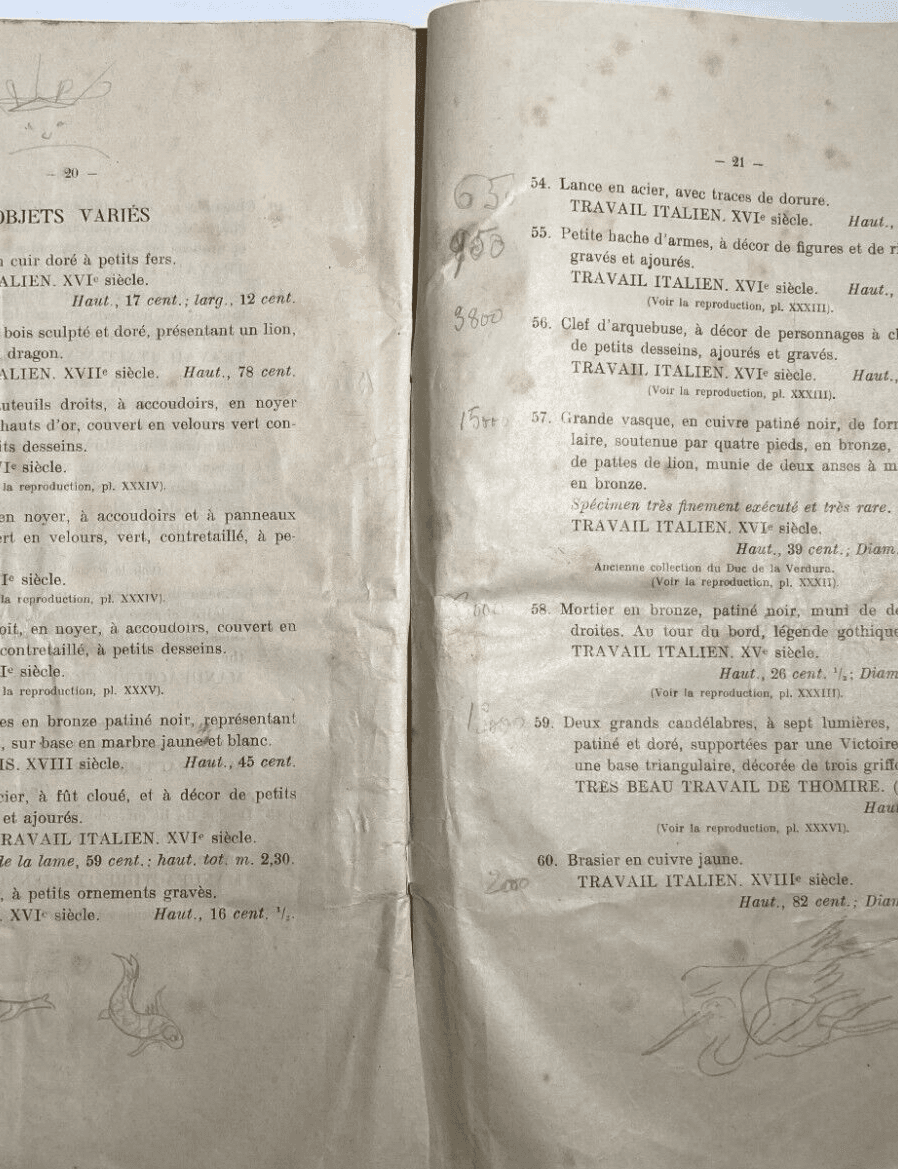 — 20 —
OBJETS VARIÉS
cuir doré à petits fers.
ALIEN. XVIe siècle.
Haut., 17 cent.; larg., 12 cent.
bois sculpté et doré, présentant un lion,
dragon.
ALIEN. XVIIe siècle. Haut., 78 cent.
uteuils droits, à accoudoirs, en noyer
hauts d'or, couvert en velours vert con-
its desseins.
Ie siècle.
la reproduction, pl. XXXIV).
en noyer, à accoudoirs et à panneaux
ert en velours, vert, contretaillé, à pe-
Ie siècle.
la reproduction, pl. XXXIV).
oit, en noyer, à accoudoirs, couvert en
contretaillé, à petits desseins.
Ie siècle.
la reproduction, pl. XXXV).
es en bronze patiné noir, représentant
, sur base en marbre jaune et blanc.
IS. XVIII siècle. Haut., 45 cent.
cier, à fût cloué, et à décor de petits
et ajourés.
RAVAIL ITALIEN. XVIe siècle.
de la lame, 59 cent.: haut. tot. m. 2,30.
, à petits ornements gravès.
. XVIe siècle. Haut., 16 cent. 1/2.
— 21 —
65 54. Lance en acier, avec traces de dorure.
TRAVAIL ITALIEN. XVIe siècle. Haut.,
950 55. Petite hache d'armes, à décor de figures et de ri
gravés et ajourés.
TRAVAIL ITALIEN. XVIe siècle. Haut.,
(Voir la reproduction, pl. XXXIII).
3800 56. Clef d'arquebuse, à décor de personnages à c
de petits desseins, ajourés et gravés.
TRAVAIL ITALIEN. XVIe siècle. Haut.,
(Voir la reproduction, pl. XXXIII).
1500 57. Grande vasque, en cuivre patiné noir, de for
laire, soutenue par quatre pieds, en bronze,
de pattes de lion, munie de deux anses à m
en bronze.
Spécimen très finement exécuté et très rare.
TRAVAIL ITALIEN. XVIe siècle.
Haut., 39 cent.; Diam.
Ancienne collection du Duc de la Verdura.
(Voir la reproduction, pl. XXXII).
58. Mortier en bronze, patiné noir, muni de de
droites. Au tour du bord, légende gothique
TRAVAIL ITALIEN. XVe siècle.
Haut., 26 cent. 1/2; Diam
(Voir la reproduction, pl. XXXIII).
59. Deux grands candélabres, à sept lumières,
patiné et doré, supportées par une Victoire
une base triangulaire, décorée de trois griffo
TRÈS BEAU TRAVAIL DE THOMIRE. (
Haut
(Voir la reproduction, pl. XXXVI).
2000 60. Brasier en cuivre jaune.
TRAVAIL ITALIEN. XVIIIe siècle.
Haut., 82 cent.; Diam